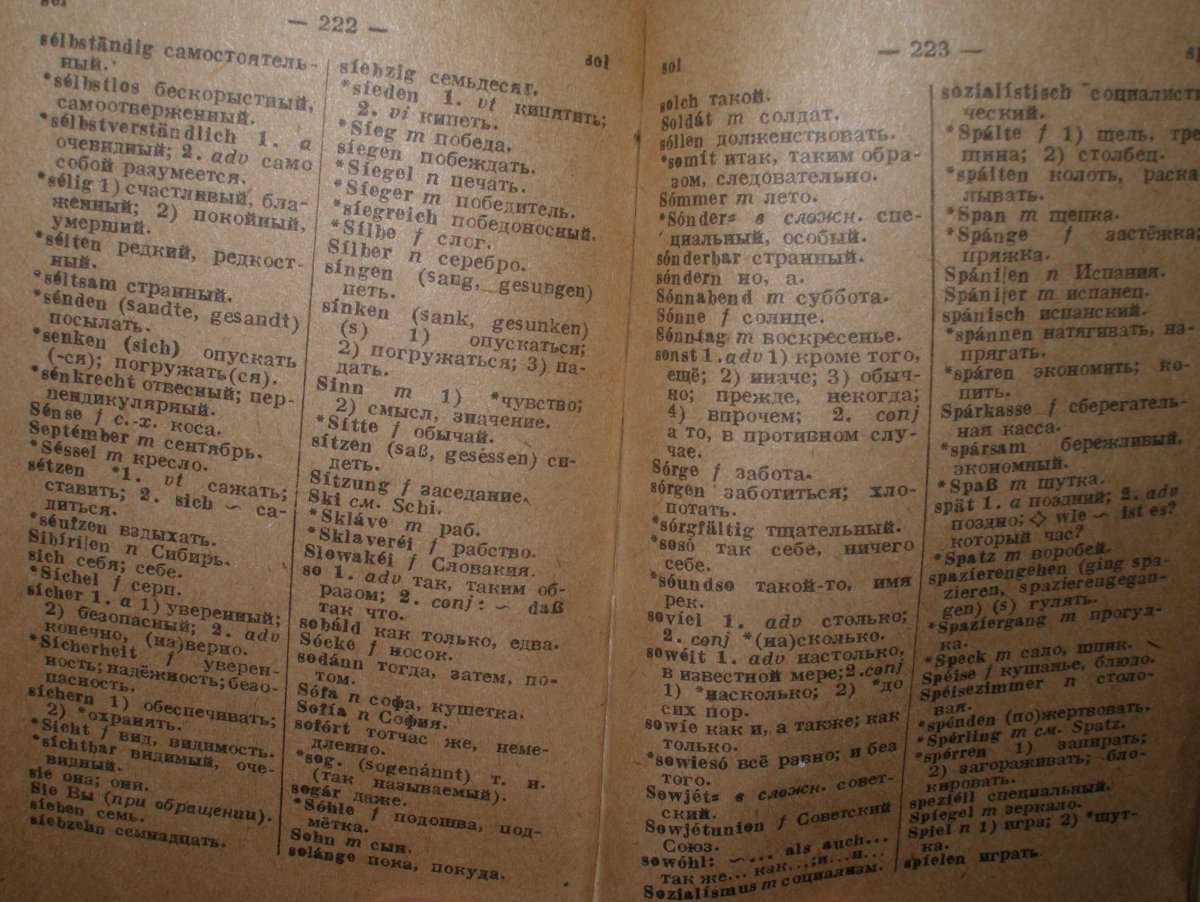 — 222 —
sol
sélbständig самостоятель-
ный.
*sélbstlos бескорыстный,
самоотверженный.
*sélbstverständlich 1. a
очевидный; 2. adv само
собой разумеется.
*sélig 1) счастливый, бла-
женный; 2) покойный,
умерший.
*sélten редкий, редкост-
ный.
*séltsam странный.
*sénden (sandte, gesandt)
посылать.
*senken (sich) опускать
(-ся); погружать(ся).
*sénkrecht отвесный; пер-
пендикулярный.
Sénse f с.-х. коса.
Septémber m сентябрь.
*Séssel m кресло.
sétzen *1. vt сажать;
ставить; 2. sich ~ са-
диться.
*séufzen вздыхать.
Sibíri|en n Сибирь.
sich себя; себе.
*Síchel f серп.
sícher 1. a 1) уверенный;
2) безопасный; 2. adv
конечно, (на)верно.
*Sícherheit f уверен-
ность; надёжность; безо-
пасность.
síchern 1) обеспечивать;
2) *охранять.
*Sicht f вид, видимость.
*síchtbar видимый, оче-
видный.
sie она; они.
Sie Вы (при обращении).
síeben семь.
síebzehn семнадцать.
síebzig семьдесят.
*síeden 1. vt кипятить;
2. vi кипеть.
*Síeg m победа.
síegen побеждать.
*Síegel n печать.
*Síeger m победитель.
*síegreich победоносный.
*Sílbe f слог.
Sílber n серебро.
síngen (sang, gesungen)
петь.
sínken (sank, gesunken)
(s) 1) опускаться;
2) погружаться; 3) па-
дать.
Sinn m 1) *чувство;
2) смысл, значение.
*Sítte f обычай.
sítzen (saß, geséssen) си-
деть.
Sítzung f заседание.
Ski см. Schi.
*Skláve m раб.
*Sklaveréi f рабство.
Slowakéi f Словакия.
so 1. adv так, таким об-
разом; 2. conj: ~ daß
так что.
sobáld как только, едва.
Sócke f носок.
sodánn тогда, затем, по-
том.
Sófa n софа, кушетка.
Sofía n София.
sofórt тотчас же, неме-
дленно.
*sog. (sogenánnt) т. н.
(так называемый).
sogár даже.
*Sóhle f подошва, под-
мётка.
Sohn m сын.
solánge пока, покуда.
— 223 —
sol
solch такой.
Soldát m солдат.
sóllen долженствовать.
*somít итак, таким обра-
зом, следовательно.
Sómmer m лето.
*Sónder= в сложн. спе-
циальный, особый.
sónderbar странный.
sóndern но, а.
Sónnabend m суббота.
Sónne f солнце.
Sónntag m воскресенье.
sonst 1. adv 1) кроме того,
ещё; 2) иначе; 3) обыч-
но; прежде, некогда;
4) впрочем; 2. conj
а то, в противном слу-
чае.
Sórge f забота.
sórgen заботиться; хло-
потать.
*sórgfältig тщательный.
*sosó так себе, ничего
себе.
*sóundso такой-то, имя
рек.
sovíel 1. adv столько;
2. conj *(на)сколько.
sowéit 1. adv настолько,
в известной мере; 2. conj
1) *насколько; 2) *до
сих пор.
sowíe как и, а также; как
только.
*sowiesó всё равно; и без
того.
Sowjét= в сложн. совет-
ский.
Sowjétunion f Советский
Союз.
sowóhl: ~... als auch...
так же... как...; и... и...
Sozialísmus m социализм.
sozialístisch социалисти
ческий.
*Spálte f 1) щель, тре
щина; 2) столбец.
*spálten колоть, раска
лывать.
*Span m щепка.
*Spánge f застёжка;
пряжка.
Spáni|en n Испания.
Spáni|er m испанец.
spánisch испанский.
*spánnen натягивать, на-
прягать.
*spáren экономить; ко-
пить.
Spárkasse f сберегатель-
ная касса.
*spársam бережливый,
экономный.
*Spaß m шутка.
spät 1. a поздний; 2. adv
поздно; ◇ wie ~ ist es?
который час?
*Spatz m воробей.
spazíerengehen (ging spa-
zieren, spazierengegan-
gen) (s) гулять.
*Spazíergang m прогул-
ка.
*Speck m сало, шпик.
Spéise f кушанье, блюдо.
Spéisezimmer n столо-
вая.
*spénden (по)жертвовать.
*Spérling m см. Spatz.
*spérren 1) запирать;
2) загораживать; бло-
кировать.
speziéll специальный.
Spíegel m зеркало.
Spiel n 1) игра; 2) *шут-
ка.
spíelen играть